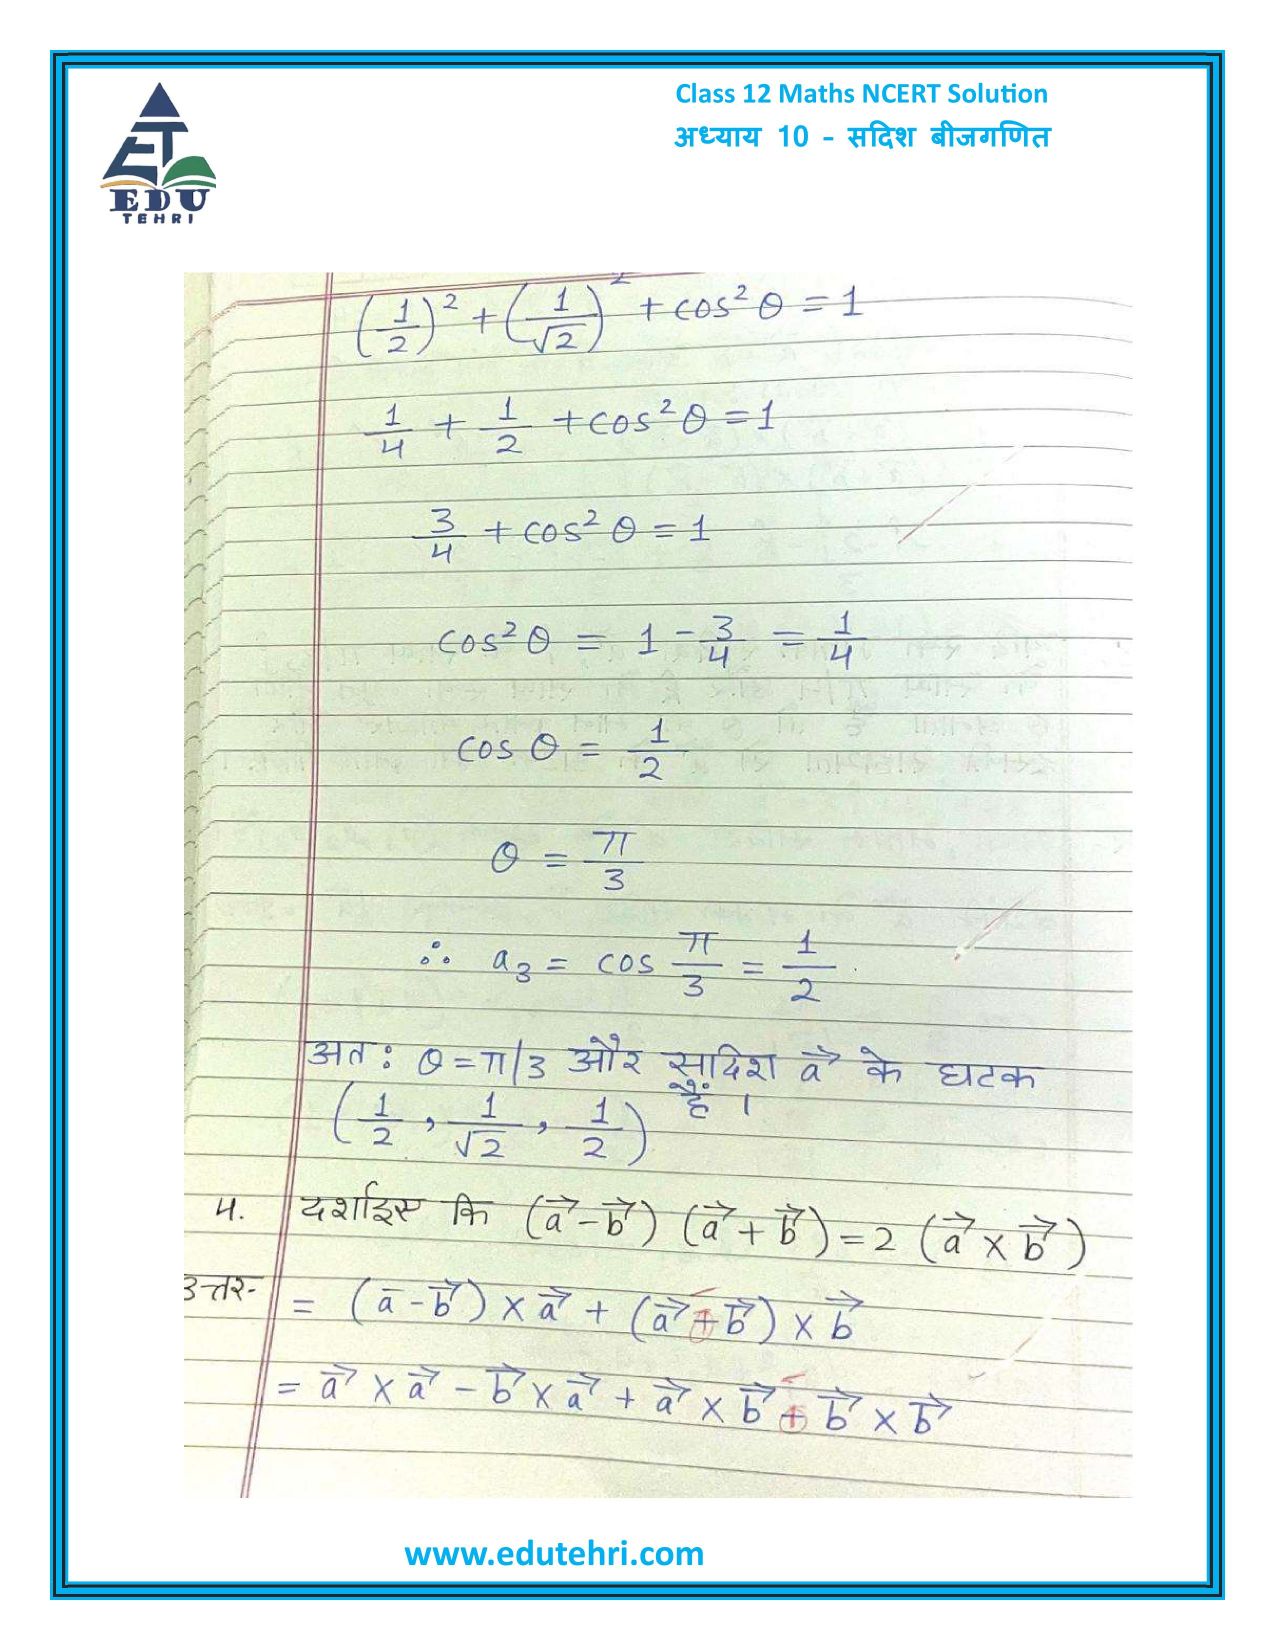 Class 12 Maths NCERT Solution
अध्याय 10 - सदिश बीजगणित
EDU
TEHRI
(1/2)² + (1/√2)² + cos²θ = 1
1/4 + 1/2 + cos²θ = 1
3/4 + cos²θ = 1
cos²θ = 1 - 3/4 = 1/4
cos θ = 1/2
θ = π/3
∴ a₃ = cos π/3 = 1/2.
अतः θ = π/3 और सदिश a⃗ के घटक
(1/2, 1/√2, 1/2) हैं ।
4. दर्शाइए कि (a⃗ - b⃗) (a⃗ + b⃗) = 2 (a⃗ × b⃗)
उत्तर- = (a̅ - b⃗) × a⃗ + (a⃗ + b⃗) × b⃗
= a⃗ × a⃗ - b⃗ × a⃗ + a⃗ × b⃗ + b⃗ × b⃗
www.edutehri.com